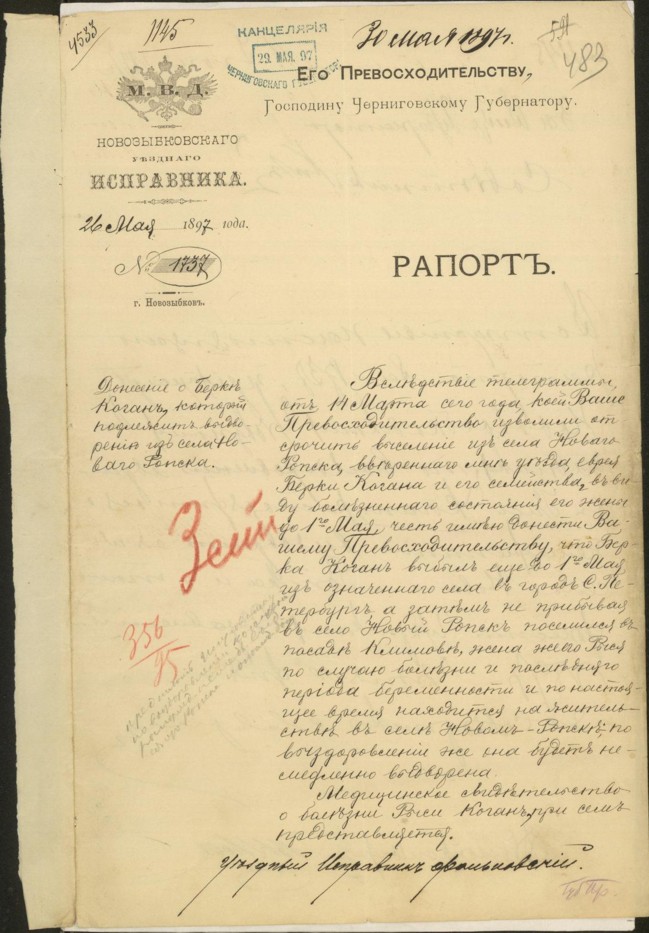 4533
1145
КАНЦЕЛЯРІЯ
29 МАЯ. 97
ЧЕРНИГОВСКАГО ГУБЕРНАТОРА
30 мая 1897 г.
483
Его Превосходительству,
Господину Черниговскому Губернатору.
М. В. Д.
НОВОЗЫБКОВСКАГО
УѢЗДНАГО
ИСПРАВНИКА.
26 Мая 1897 года.
№ 1737
г. Новозыбковъ.
РАПОРТЪ.
Донесеніе о Беркѣ
Коганъ, который
подлежитъ выдво-
ренію изъ села Но-
ваго Ропска.
Вслѣдствіе телеграммы,
отъ 14 Марта сего года, коей Ваше
Превосходительство изволили от
срочить выселеніе изъ села Новаго
Ропска, ввѣреннаго мнѣ уѣзда, еврея
Берки Когана и его семейства, въ ви-
ду болѣзненнаго состоянія его жены
до 1го Мая, честь имѣю донести Ва-
шему Превосходительству, что Бер-
ка Коганъ выбылъ еще до 1го Мая
изъ означеннаго села въ городъ С. Пе-
тербургъ, а затѣмъ не прибывая
въ село Новый Ропскъ поселился въ
посадѣ Климовѣ, жена же его Рыся
по случаю болѣзни и послѣдняго
періода беременности и по настоя-
щее время находится на житель-
ствѣ въ селѣ Новомъ-Ропскѣ; по
выздоровленіи же она будетъ не-
медленно выдворена.
Медицинское свидѣтельство
о болѣзни Рыси Коганъ, при семъ
представляется.
Уѣздный Исправникъ
356
95